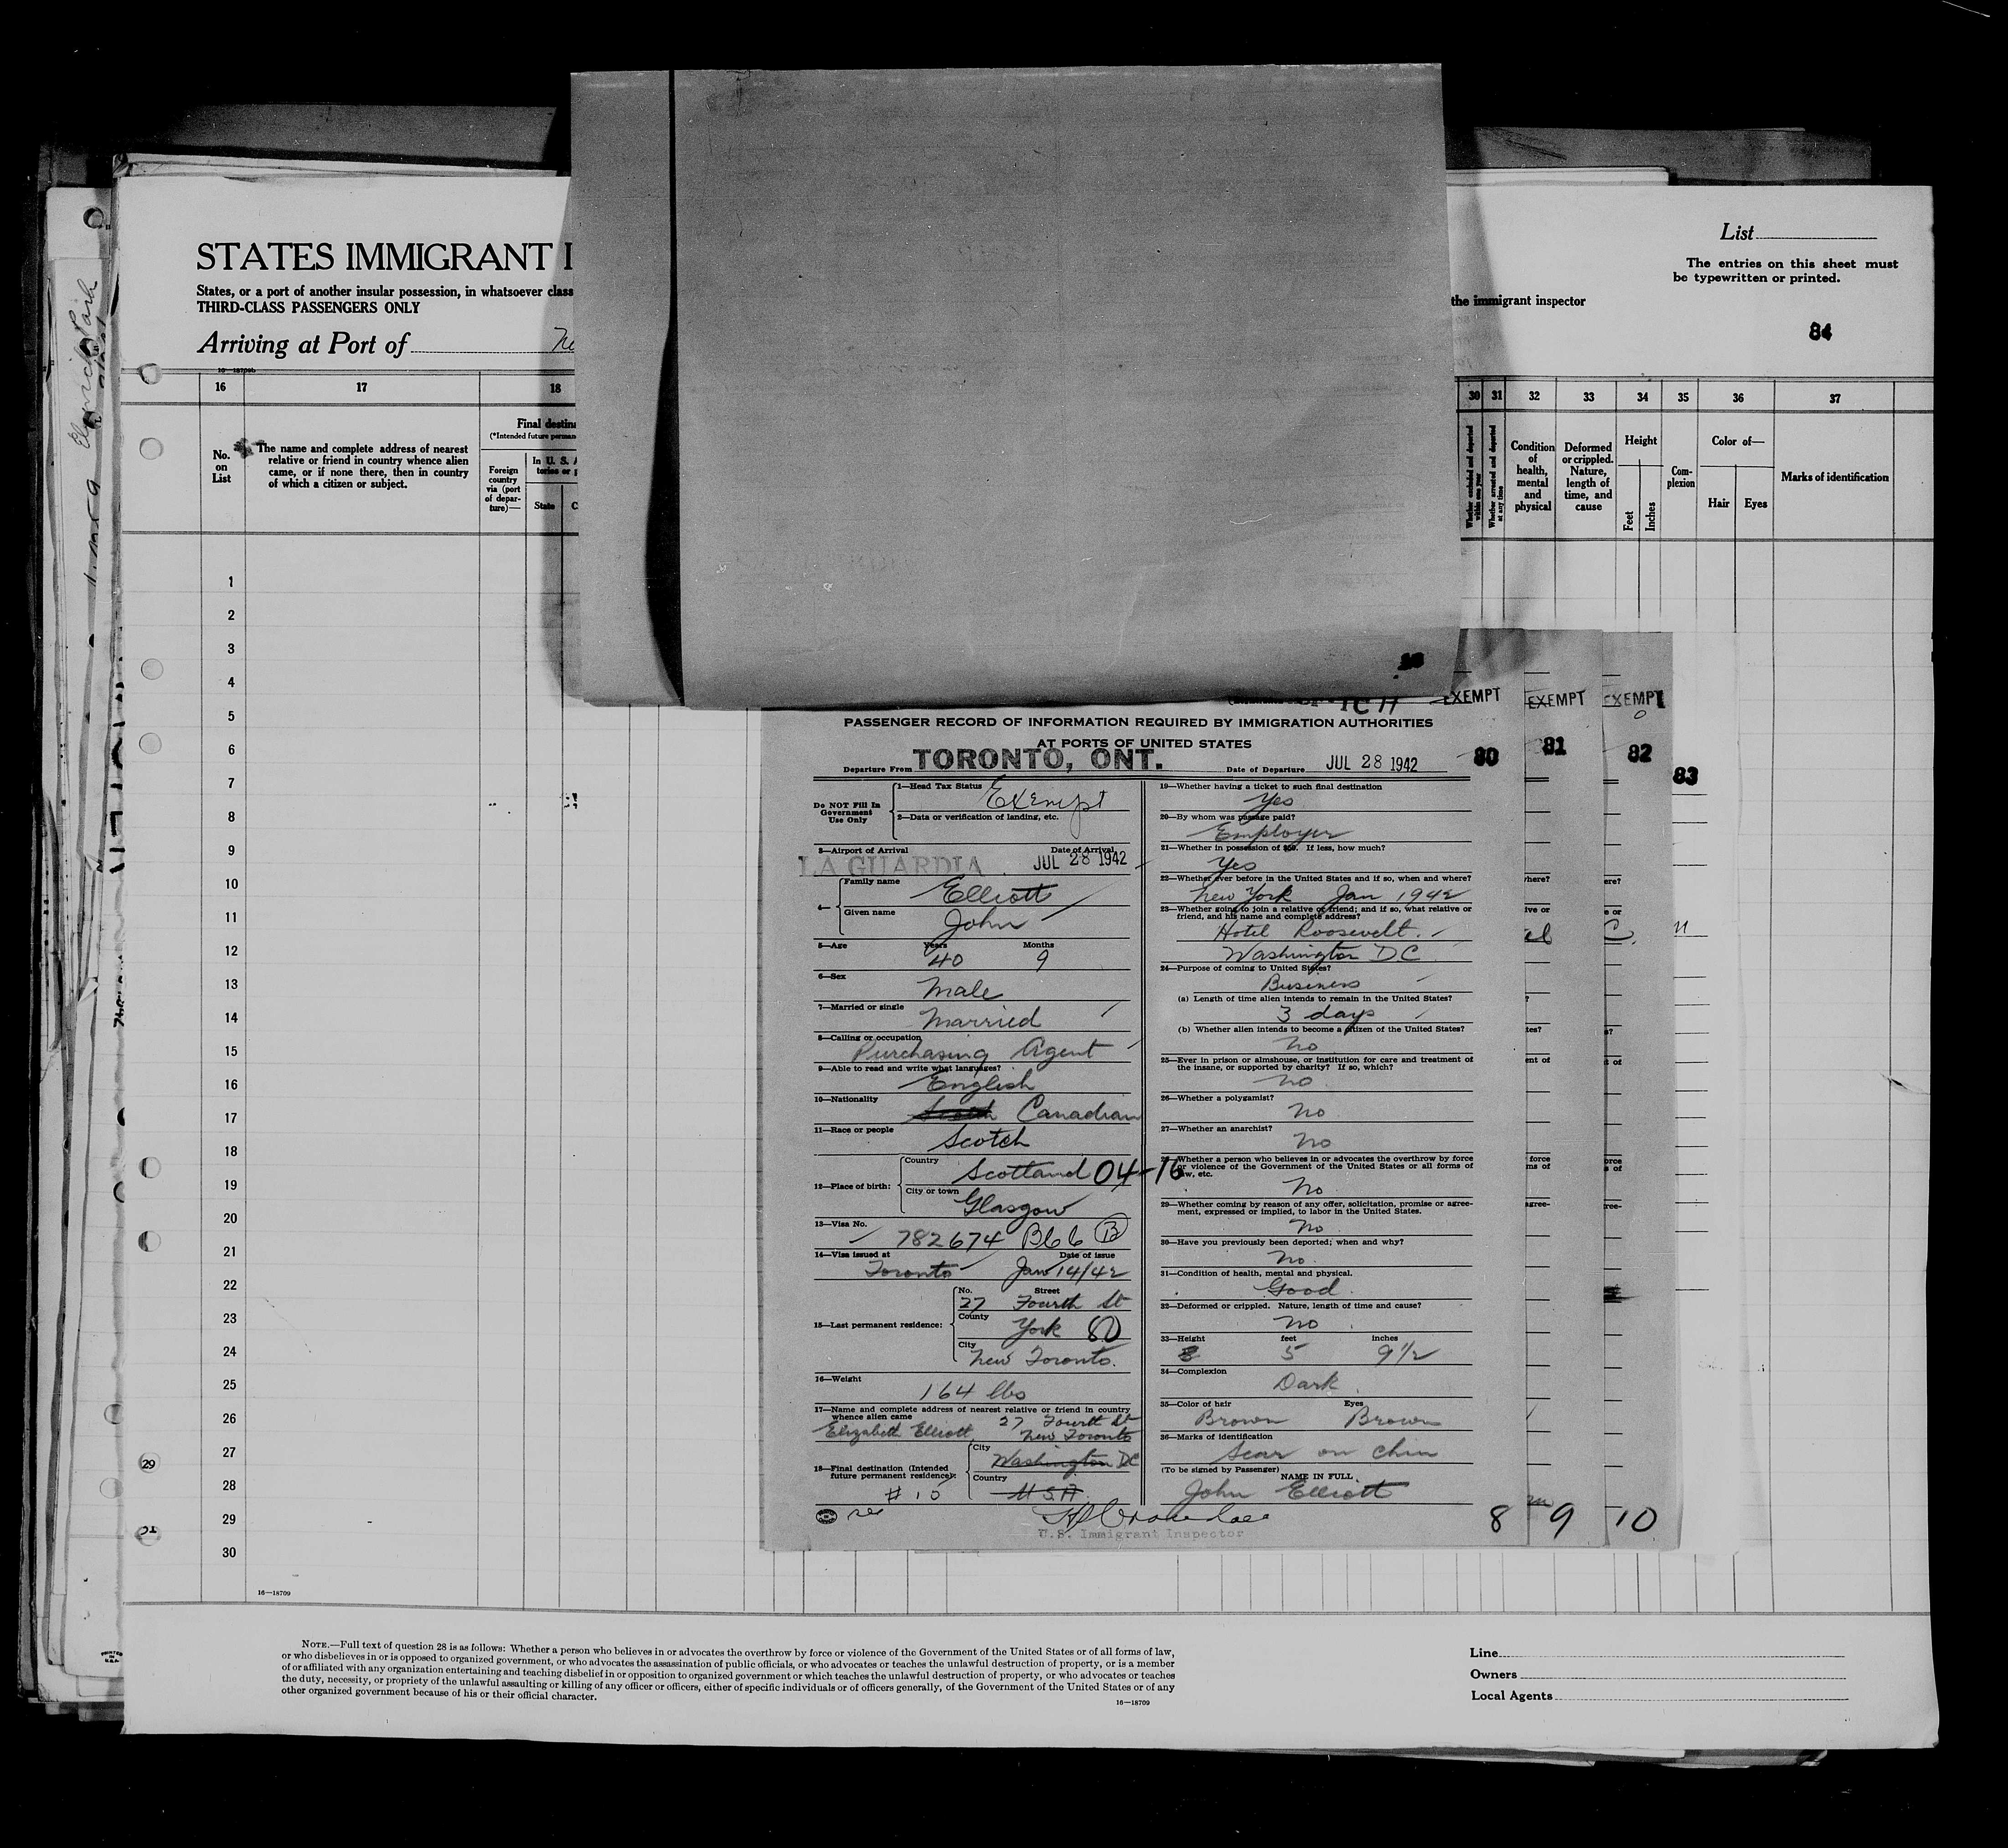 STATES IMMIGRANT I
States, or a port of another insular possession, in whatsoever class
THIRD-CLASS PASSENGERS ONLY
Arriving at Port of
List
The entries on this sheet must
be typewritten or printed.
the immigrant inspector
84
16 17 18 30 31 32 33 34 35 36 37
No.
on
List
The name and complete address of nearest
relative or friend in country whence alien
came, or if none there, then in country
of which a citizen or subject.
Final destina
(*Intended future perman
Foreign
country
via (port
of depar-
ture)—
In U. S. A
tories or p
State C
Whether excluded and deported
within one year
Whether arrested and deported
at any time
Condition
of
health,
mental
and
physical
Deformed
or crippled.
Nature,
length of
time, and
cause
Height
Feet
Inches
Com-
plexion
Color of—
Hair Eyes
Marks of identification
1
2
3
4
5
6
7
8
9
10
11
12
13
14
15
16
17
18
19
20
21
22
23
24
25
26
27
28
29
30
16—18709
EXEMPT EXEMPT EXEMPT
PASSENGER RECORD OF INFORMATION REQUIRED BY IMMIGRATION AUTHORITIES
AT PORTS OF UNITED STATES
Departure From TORONTO, ONT. Date of Departure JUL 28 1942
80 81 82 83
Do NOT Fill In
Government
Use Only
1—Head Tax Status Exempt
2—Data or verification of landing, etc.
3—Airport of Arrival Date of Arrival
LA GUARDIA JUL 28 1942
4— Family name Elliott
Given name John
5—Age Years 40 Months 9
6—Sex Male
7—Married or single Married
8—Calling or occupation Purchasing Agent
9—Able to read and write what languages? English
10—Nationality Canadian
11—Race or people Scotch
12—Place of birth: Country Scotland 04-16
City or town Glasgow
13—Visa No. 782674 B66 B
14—Visa issued at Toronto Date of issue Jan 14/42
15—Last permanent residence: No. 27 Street Fourth St
County York
City New Toronto.
16—Weight 164 lbs
17—Name and complete address of nearest relative or friend in country
whence alien came 27 Fourth St
Elizabeth Elliott New Toronto
18—Final destination (Intended
future permanent residence):
City Washington DC
Country U.S.A.
# 15
U.S. Immigrant Inspector
19—Whether having a ticket to such final destination
Yes
20—By whom was passage paid?
Employer
21—Whether in possession of $50. If less, how much?
Yes
22—Whether ever before in the United States and if so, when and where?
New York Jan 1942
23—Whether going to join a relative or friend; and if so, what relative or
friend, and his name and complete address?
Hotel Roosevelt.
Washington DC
24—Purpose of coming to United States?
Business
(a) Length of time alien intends to remain in the United States?
3 days
(b) Whether alien intends to become a citizen of the United States?
No
25—Ever in prison or almshouse, or institution for care and treatment of
the insane, or supported by charity? If so, which?
No
26—Whether a polygamist?
No
27—Whether an anarchist?
No
Whether a person who believes in or advocates the overthrow by force
or violence of the Government of the United States or all forms of
law, etc.
No
29—Whether coming by reason of any offer, solicitation, promise or agree-
ment, expressed or implied, to labor in the United States.
No
30—Have you previously been deported; when and why?
No.
31—Condition of health, mental and physical.
Good
32—Deformed or crippled. Nature, length of time and cause?
No
33—Height feet inches
5 9½
34—Complexion
Dark
35—Color of hair Eyes
Brown Brown
36—Marks of identification
Scar on chin
(To be signed by Passenger) NAME IN FULL
John Elliott
8 9 10
NOTE.—Full text of question 28 is as follows: Whether a person who believes in or advocates the overthrow by force or violence of the Government of the United States or of all forms of law,
or who disbelieves in or is opposed to organized government, or who advocates the assassination of public officials, or who advocates or teaches the unlawful destruction of property, or is a member
of or affiliated with any organization entertaining and teaching disbelief in or opposition to organized government or which teaches the unlawful destruction of property, or who advocates or teaches
the duty, necessity, or propriety of the unlawful assaulting or killing of any officer or officers, either of specific individuals or of officers generally, of the Government of the United States or of any
other organized government because of his or their official character.
16—18709
Line
Owners
Local Agents